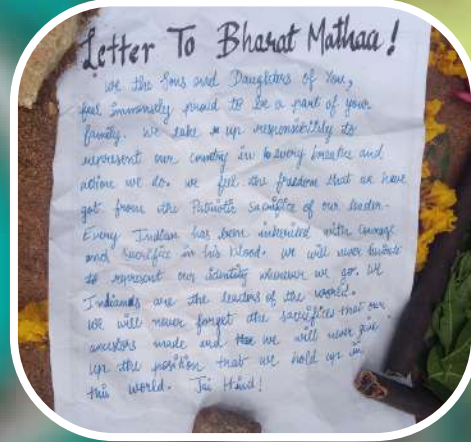 Letter To Bharat Mathaa!
We the Sons and Daughters of You,
feel Immensely proud to be a part of your
family. We take up responsibility to
represent our country in every breathe and
action we do. We feel the freedom that we have
got from the Patriotic sacrifice of our leader.
Every Indian has been inherited with courage
and sacrifice in his blood. We will never
to represent our identity wherever we go. We
Indians are the leaders of the world.
We will never forget the sacrifices that our
ancestors made and we will never give
up the position that we hold up in
this world. Jai Hind!